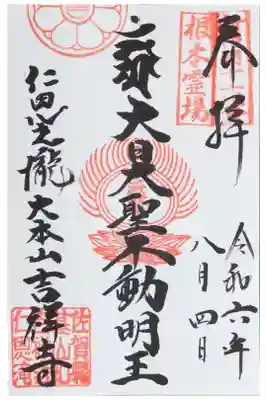 奉拝
根本霊場
令和六年
八月四日
大日大聖不動明王
大本山吉祥寺
佐賀県